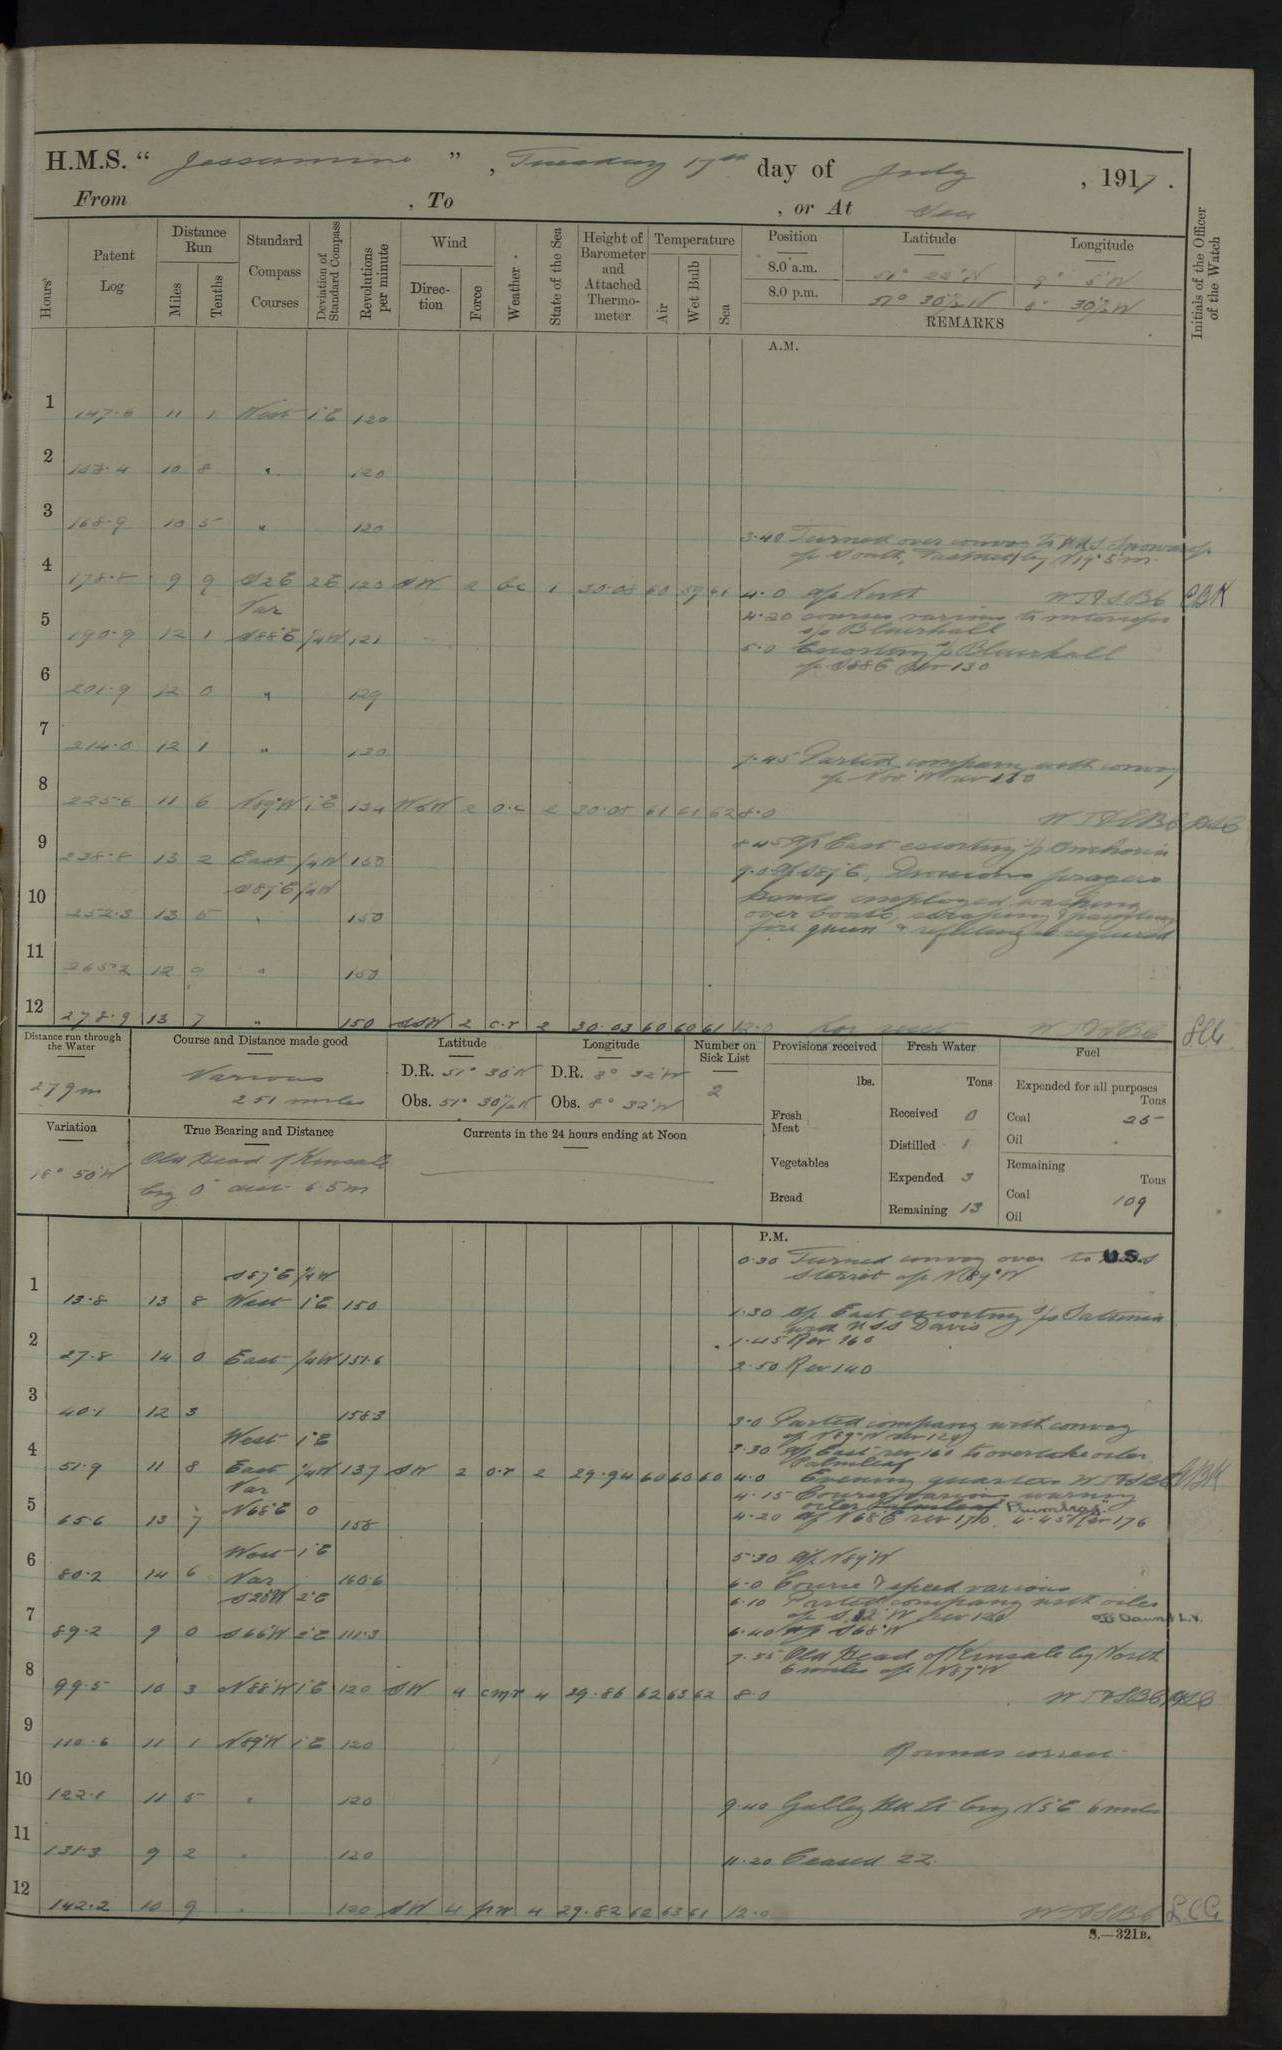 H.M.S. " Jessamine ", Tuesday 17th day of July, 1917.
From , To , or At Sea
Hours
Patent Log
Distance Run
Miles
Tenths
Standard Compass Courses
Deviation of Standard Compass
Revolutions per minute
Wind
Direction
Force
Weather.
State of the Sea
Height of Barometer and Attached Thermometer
Temperature
Air
Wet Bulb
Sea
Position Latitude Longitude
8.0 a.m. 51° 22' N 9° 5' W
8.0 p.m. 51° 30½ N 8° 30½ W
REMARKS
Initials of the Officer of the Watch
A.M.
1 147.6 11 1 West 1°E 120
2 158.4 10 8 " 120
3 168.9 10 5 " 120
3.40 Turned over convoy to HMS Snowdrop
a/c South, Fastnet brg N19° 5m
4 178.8 9 9 S2E 2E 120 SW 2 bc 1 30.08 60 59 61 4.0 a/c North
Var
4.20 courses various to intercept
s/s Blairhall
5 190.9 12 1 S88E ¼W 121
5.0 Escorting s/s Blairhall
a/c S88E rev 130
6 201.9 12 0 " 129
7 214.0 12 1 " 130
7.45 Parted company with convoy
8 225.6 11 6 N89°W 1°E 134 WSW 2 o.c 2 30.05 61 61 62 8.0
9 238.8 13 2 East ¼W 150
8.45 a/c East escorting s/s
9.0 a/c S87E, Divisions prayers
S87E ¼W
10 252.3 13 5 " 150
hands employed washing
over boats, scraping & painting
fore & refitting as required
11 265.2 12 9 " 150
12 278.9 13 7 " 150 SSW 2 c.r 2 30.03 60 60 61 12.0
Distance run through the Water
279m
Course and Distance made good
Various
251 miles
Latitude
D.R. 51° 30' N
Obs. 51° 30½ N
Longitude
D.R. 8° 32' W
Obs. 8° 32' W
Number on Sick List
2
Provisions received
lbs.
Fresh Meat
Vegetables
Bread
Fresh Water
Tons
Received 0
Distilled 1
Expended 3
Remaining 13
Fuel
Expended for all purposes
Tons
Coal 25
Oil
Remaining
Tons
Coal 109
Oil
Variation
18° 50' W
True Bearing and Distance
Old Head of Kinsale
brg 0° dist 6.5m
Currents in the 24 hours ending at Noon
P.M.
0.30 Turned convoy over to U.S.S
Sterret a/c N89°W
S87°E ¼W
1 13.8 13 8 West 1°E 150
1.30 a/c East escorting s/s
with USS Davis
1.45 Rev 160
2 27.8 14 0 East ¼W 151.6
2.50 Rev 140
3 40.1 12 3 158.3
3.0 Parted company with convoy
a/c N89°W rev 120
West 1°E
3.30 a/c East rev 160 to overtake oiler
Palmleaf
4 51.9 11 8 East ¼W 137 SW 2 o.r 2 29.94 60 60 60 4.0 Evening quarters
Var
4.15 Course various warning
oiler
5 65.6 13 7 N68E 0 158
4.20 a/c N68°E rev 170. 4.45 Rev 176
West 1°E
5.30 a/c N89°W
6 80.2 14 6 Var 160.6
6.0 Course & speed various
S28W 2°E
6.10 Parted company with oiler
off Daunt L.V.
7 89.2 9 0 S66W 2°E 111.3
6.40 a/c S68°W
7.55 Old Head of Kinsale brg North
6 miles a/c N87°W
8 99.5 10 3 N88W 1°E 120 SW 4 cmr 4 29.86 62 63 62 8.0
9 110.6 11 1 N89W 1°E 120
Rounds correct
10 122.1 11 5 " 120
9.40 Galley Hd Lt brg N5E 6 miles
11 131.3 9 2 " 120
11.20 Ceased ZZ
12 142.2 10 9 " 120 SW 4 4 29.82 62 63 61 12.0
L.C.G.
S.—321B.